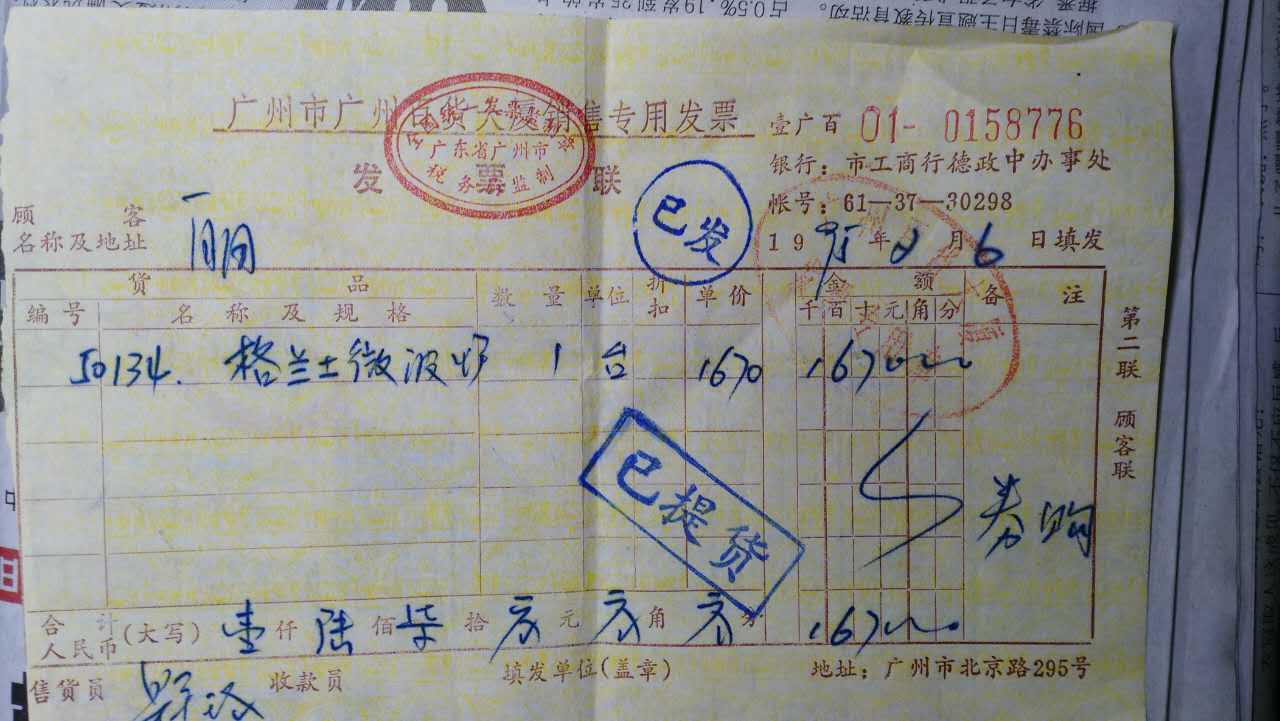 国际禁毒日主题宣传教育活动。
广州市广州百货大厦销售专用发票
壹广百 01- 0158776
发票联
全国统一发票监制章
广东省广州市
税务局监制
银行：市工商行德政中办事处
帐号：61—37—30298
已发
顾客
名称及地址
19 95 年 2 月 6 日填发
货品 数量 单位 折扣 单价 金额 备注
编号 名称及规格 千百十元角分
50134. 格兰士微波炉 1 台 1670 1670
已提货
券购
合计
人民币(大写) 壹仟陆佰柒拾 元 角 分 1670
售货员 收款员 填发单位(盖章) 地址：广州市北京路295号
第二联 顾客联